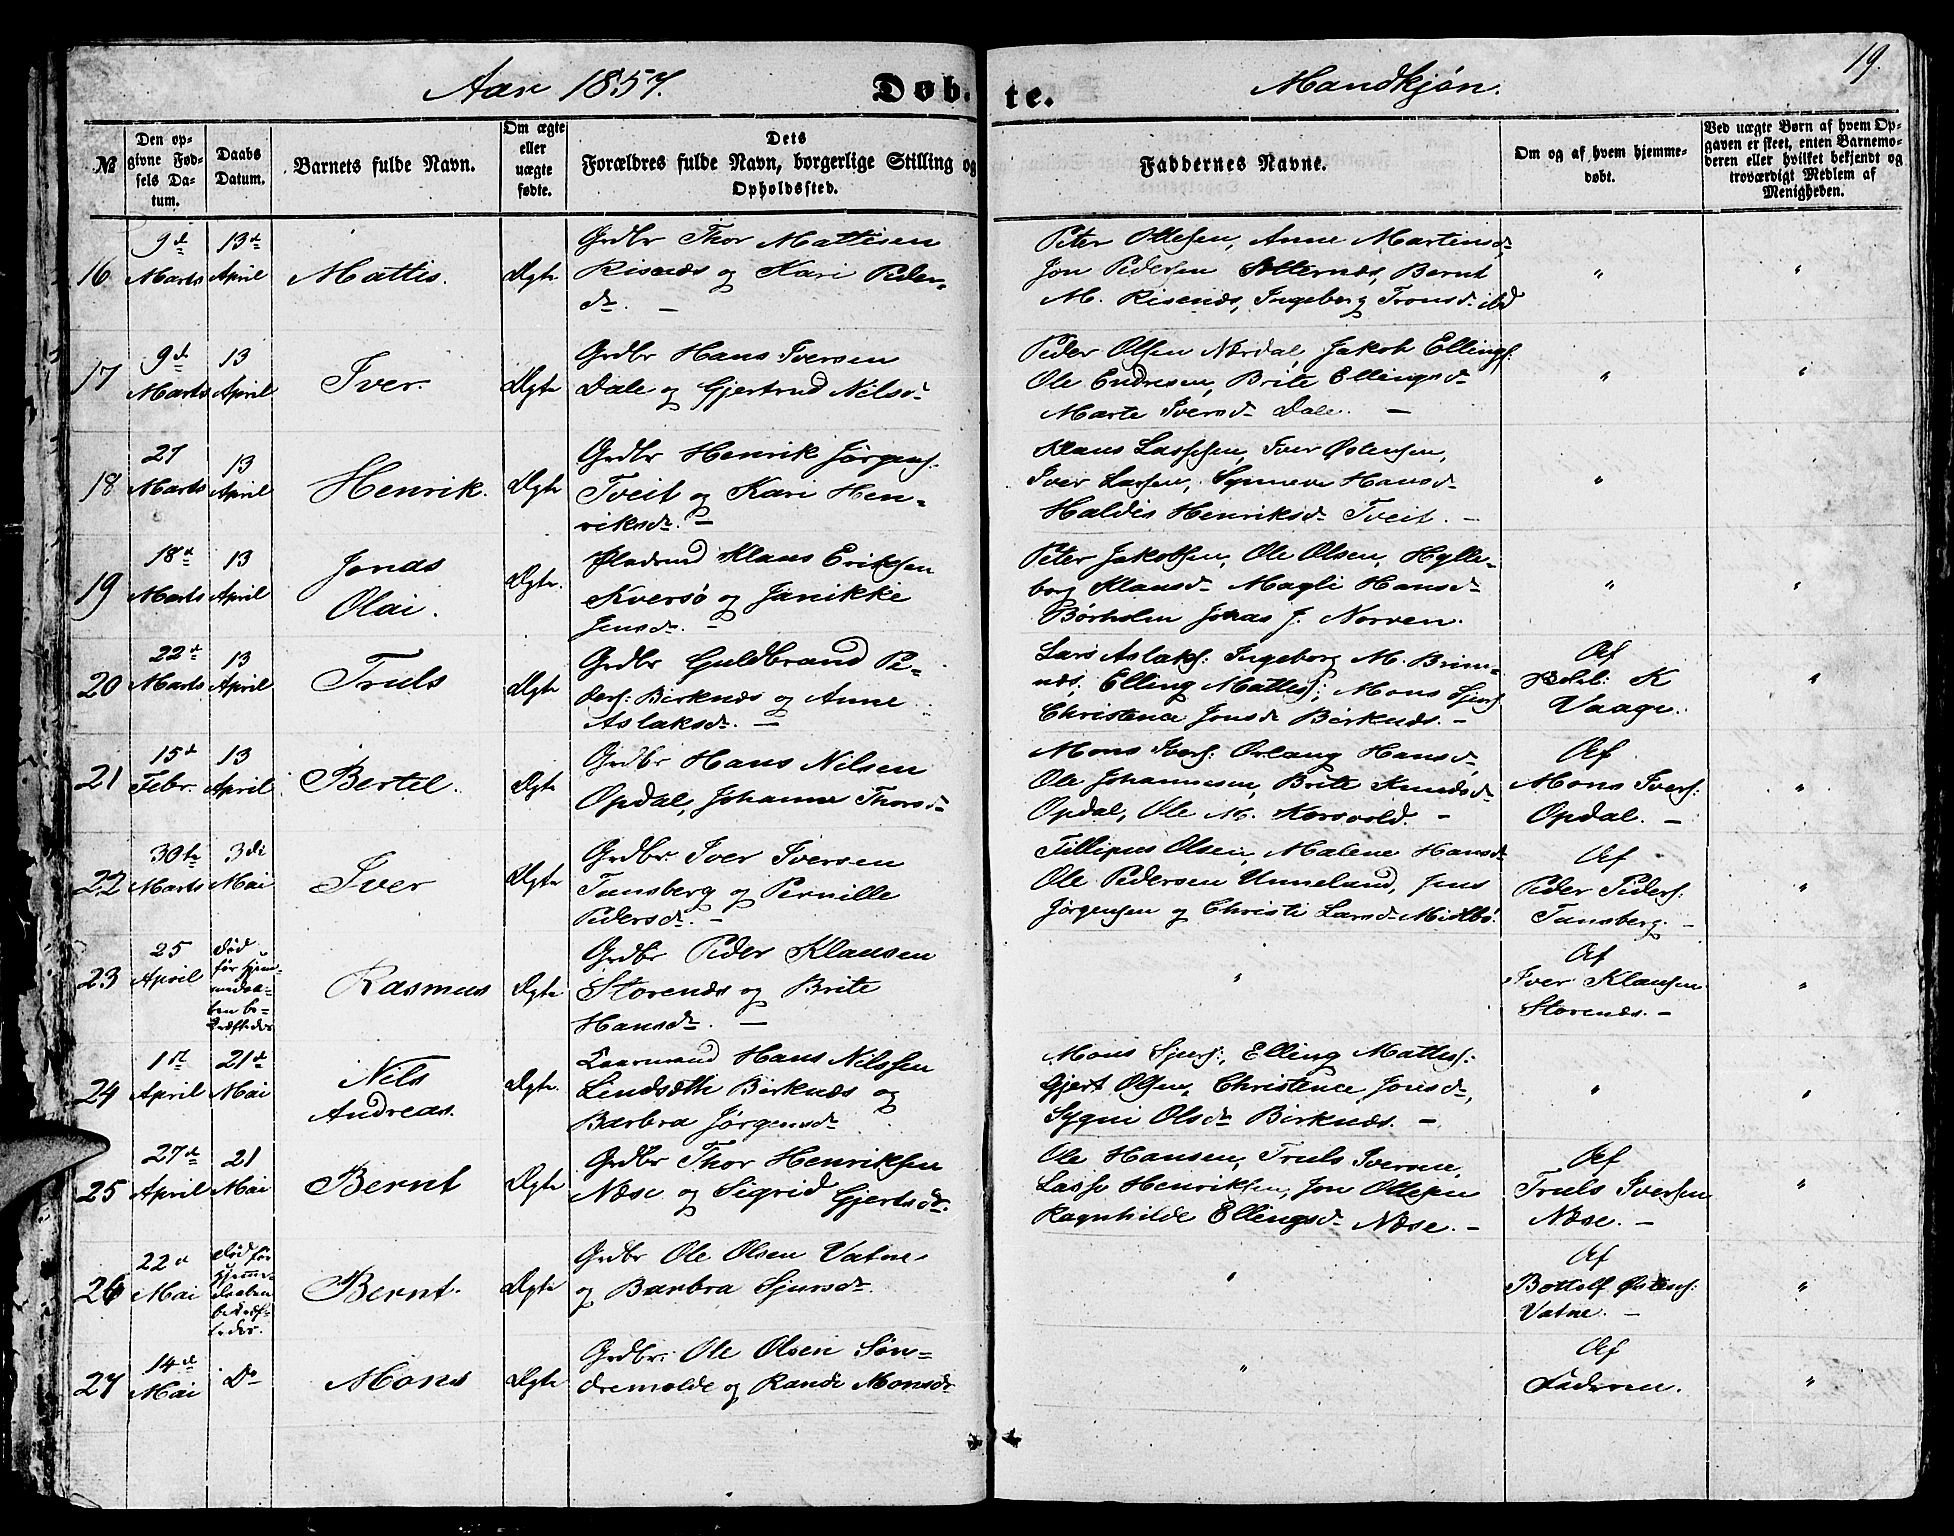 Aar 1857.
Døb-
te.
Mandkjøn.
19.
№
Den op-
givne Fød-
sels Da-
tum.
Daabs
Datum.
Barnets fulde Navn.
Om ægte
eller
uægte
fødte.
Dets
Forældres fulde Navn, borgerlige Stilling og
Opholdssted.
Faddernes Navne.
Om og af hvem hjemme-
døbt.
Ved uægte Børn af hvem Op-
gaven er skeet, enten Barnemo-
deren eller hvilket bekjendt og
troværdigt Medlem af
Menigheden.
16
9d
Marts
13de
April
Mattis.
Ægte
Grdbr Thor Mattisen
Risenæs og Kari Peder-
dr. —
Peter Ottesen, Anne Martinsdr,
Jon Pedersen Sølternæs, Bernt
M. Risenæs, Ingeborg Tronsdr ibd
"
"
17
9d
Marts
13
April
Iver.
Ægte
Grdbr Hans Iversen
Dale og Gjertrud Nilsdr
Peder Olsen Nærdal, Jakob Ellings:
Ole Endresen, Brite Ellingsdr
Marte Iversdr Dale. —
"
"
18
21
Marts
13
April
Henrik.
Ægte
Grdbr Henrik Jørgens:
Tveit og Kari Hen-
riksdr. —
Klaus Lassesen, Iver Østensen,
Iver Lassen, Synneve Hansdr
Haldis Henriksdr Tveit. —
"
19
18d
Marts
13
April
Jonas
Olai.
Ægte.
Pladsmd Klaus Eriksen
Kversø og Janikke
Jensdr. —
Peter Jakobsen, Ole Olsen, Hylle-
borg Klausdr Magli Hansdr
Børholm Jonas J. Norven.
"
"
20
22d
Marts
13
April
Truls
Ægte
Grdbr Guldbrand Pe-
ders: Birknæs og Anne
Aslaksdr. —
Lars Aslaks: Ingeborg M. Brim-
næs, Elling Mattes:, Mons Sjurs
Christence Jonsdr Birknæs. —
Af
K
Vaage.
"
21
15d
Febr.
13
April
Bertel.
Ægte
Grdbr Hans Nilsen
Opdal, Johanne Thorsdr
Mons Ivers: Ørlaug Hansdr,
Ole Johannesen, Brite Knudsdr
Opdal, Ole M. Korsvold. —
Af
Mons Ivers:
Opdal. —
"
22
30te
Marts
3di
Mai
Iver
Ægte
Grdbr. Iver Iversen
Tunsberg og Pernille
Pedersdr. —
Fillipus Olsen, Malene Hansdr
Ole Pedersen Unneland, Jens
Jørgensen og Christi Larsdr Midtbø.
Af
Peder Peders:
Tunsberg. —
"
23
25
April
død
før hjem-
medaa-
ben be-
kræftedes
Rasmus
Ægte
Grdbr Peder Klausen
Storenæs og Brite
Hansdr. —
"
Af
Iver Klausen
Storenæs. —
"
24
1st
April
21d
Mai
Nils
Andreas.
Ægte.
Kaarmand Hans Nilssen
Lindsæth Birknæs og
Barbra Jørgensdr
Mons Sjurs:, Elling Mattes:
Gjert Olsen, Christence Jonsdr,
Sygni Olsdr Birknæs. —
"
"
25
27d
April
21
Mai
Bernt
Ægte
Grdbr Thor Henriksen
Næse og Sigrid Gjertsdr.
Ole Hansen, Truls Iversen,
Lasse Henriksen, Jon Ottesen
Ragnhilde Ellingsdr Næse. —
Af
Truls Iversen
Næse. —
"
26
22d
Mai
død før
hjemme-
daaben
bekræf-
tedes.
Bernt.
Ægte
Grdbr Ole Olsen Vatne
og Barbra Sjursdr.
"
Af
Bottolf Østens:
Vatne. —
"
27
14d
Mai
Do
Mons
Ægte
Grdbr. Ole Olsen Søn-
dremolde og Rande Monsdr
"
Af
Faderen.
"